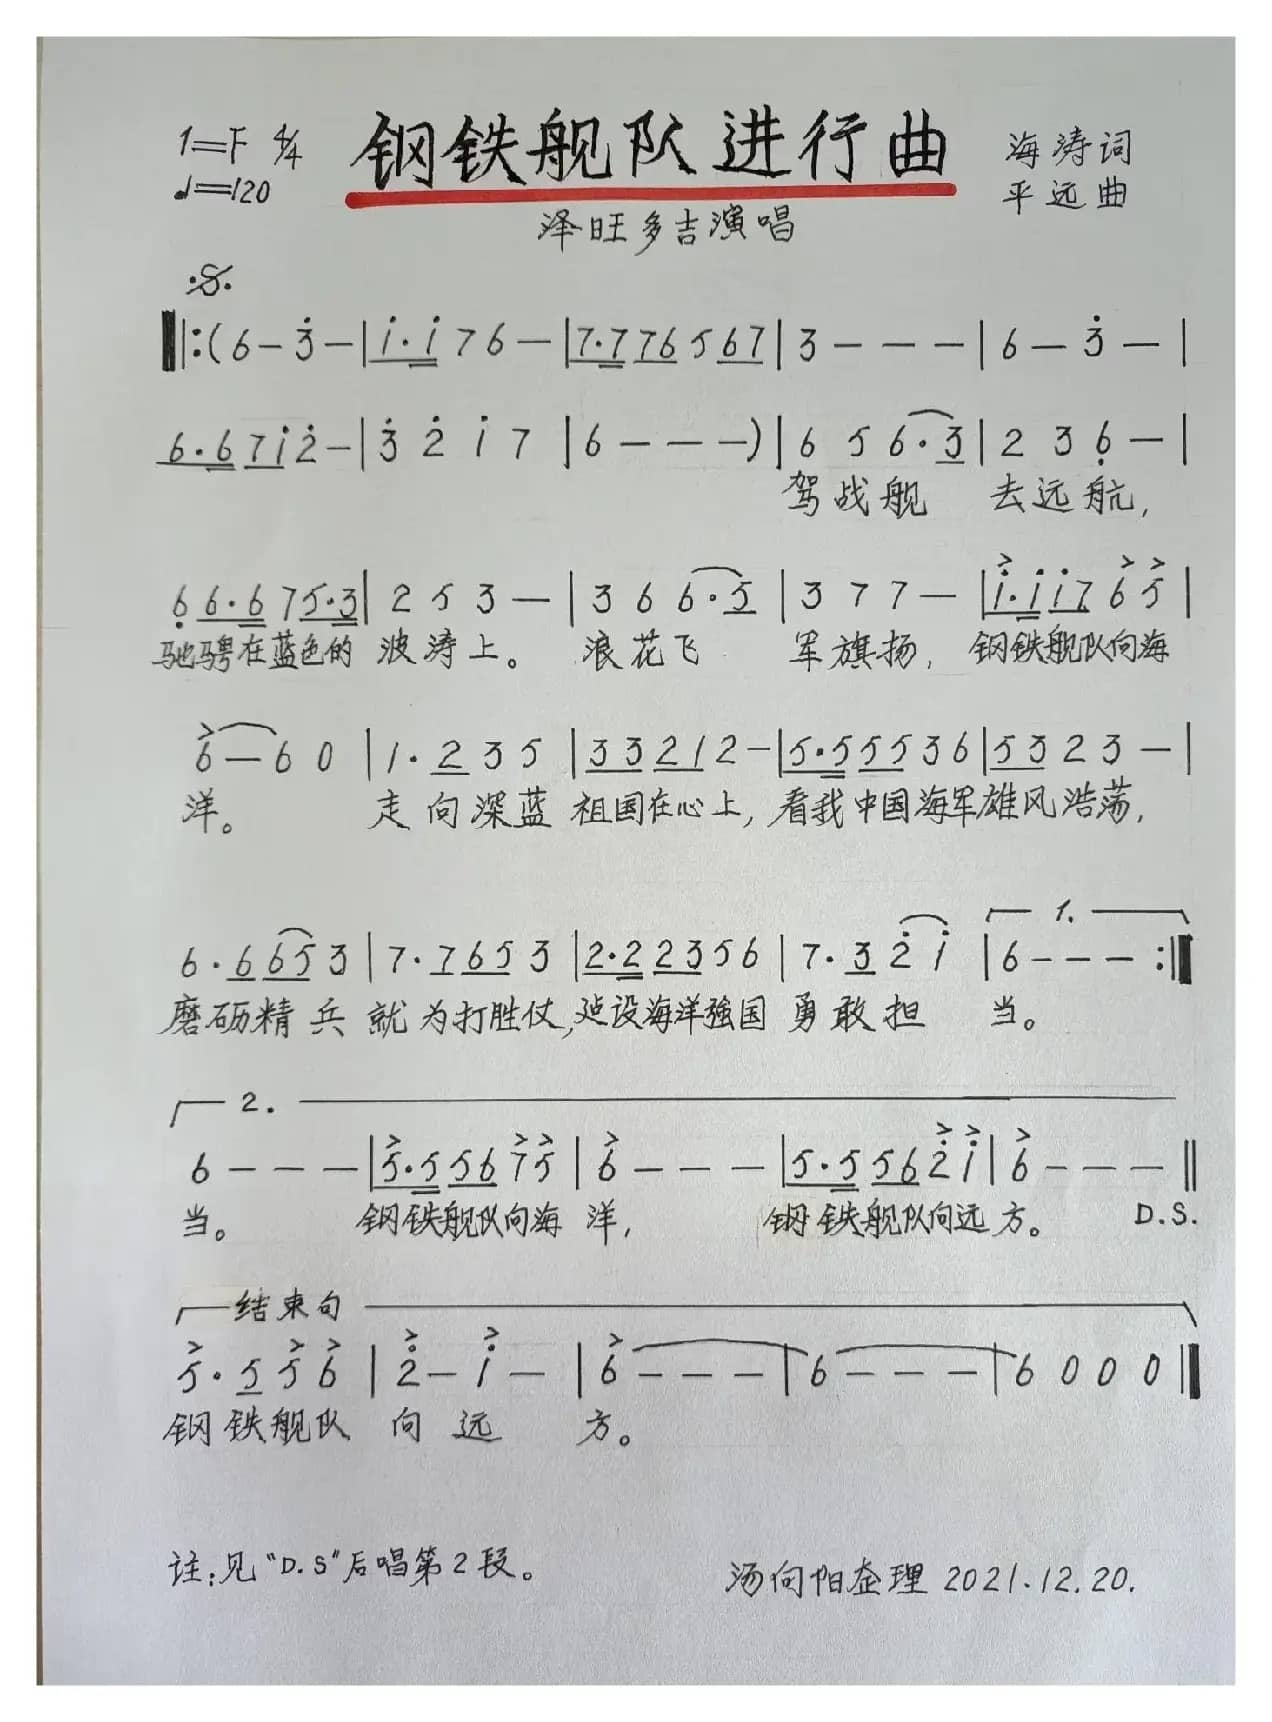 1=F 4/4 钢铁舰队进行曲 海涛词
♩=120 平远曲
泽旺多吉演唱
𝄋
‖:(6 - 3̇ - | 1̇·1̇ 7 6 - | 7·7 7 6 5 6 7 | 3 - - - | 6 - 3̇ - |
6·6 7 1̇ 2̇ - | 3̇ 2̇ 1̇ 7 | 6 - - -) | 6 5 6·3 | 2 3 6̣ - |
驾战舰 去远航,
6̣ 6·6 7 5·3 | 2 5 3 - | 3 6 6·5 | 3 7 7 - | 1̇·1̇ 1̇ 7 6 5 |
驰骋在蓝色的 波涛上。 浪花飞 军旗扬, 钢铁舰队向海
6 - 6 0 | 1·2 3 5 | 3 3 2 1 2 - | 5·5 5 5 3 6 | 5 3 2 3 - |
洋。 走向深蓝 祖国在心上, 看我中国海军雄风浩荡,
1.
6·6 6 5 3 | 7·7 6 5 3 | 2·2 2 3 5 6 | 7·3 2̇ 1̇ | 6 - - - :‖
磨砺精兵 就为打胜仗, 建设海洋强国 勇敢担 当。
2.
6 - - - | 5·5 5 6 7 5 | 6 - - - | 5·5 5 6 2̇ 1̇ | 6 - - - ‖
当。 钢铁舰队向海 洋, 钢铁舰队向远方。 D.S.
结束句
5·5 5 6 | 2̇ - 1̇ - | 6 - - - | 6 - - - | 6 0 0 0 ‖
钢铁舰队 向远 方。
注:见"D.S"后唱第2段。 汤向阳整理 2021.12.20.